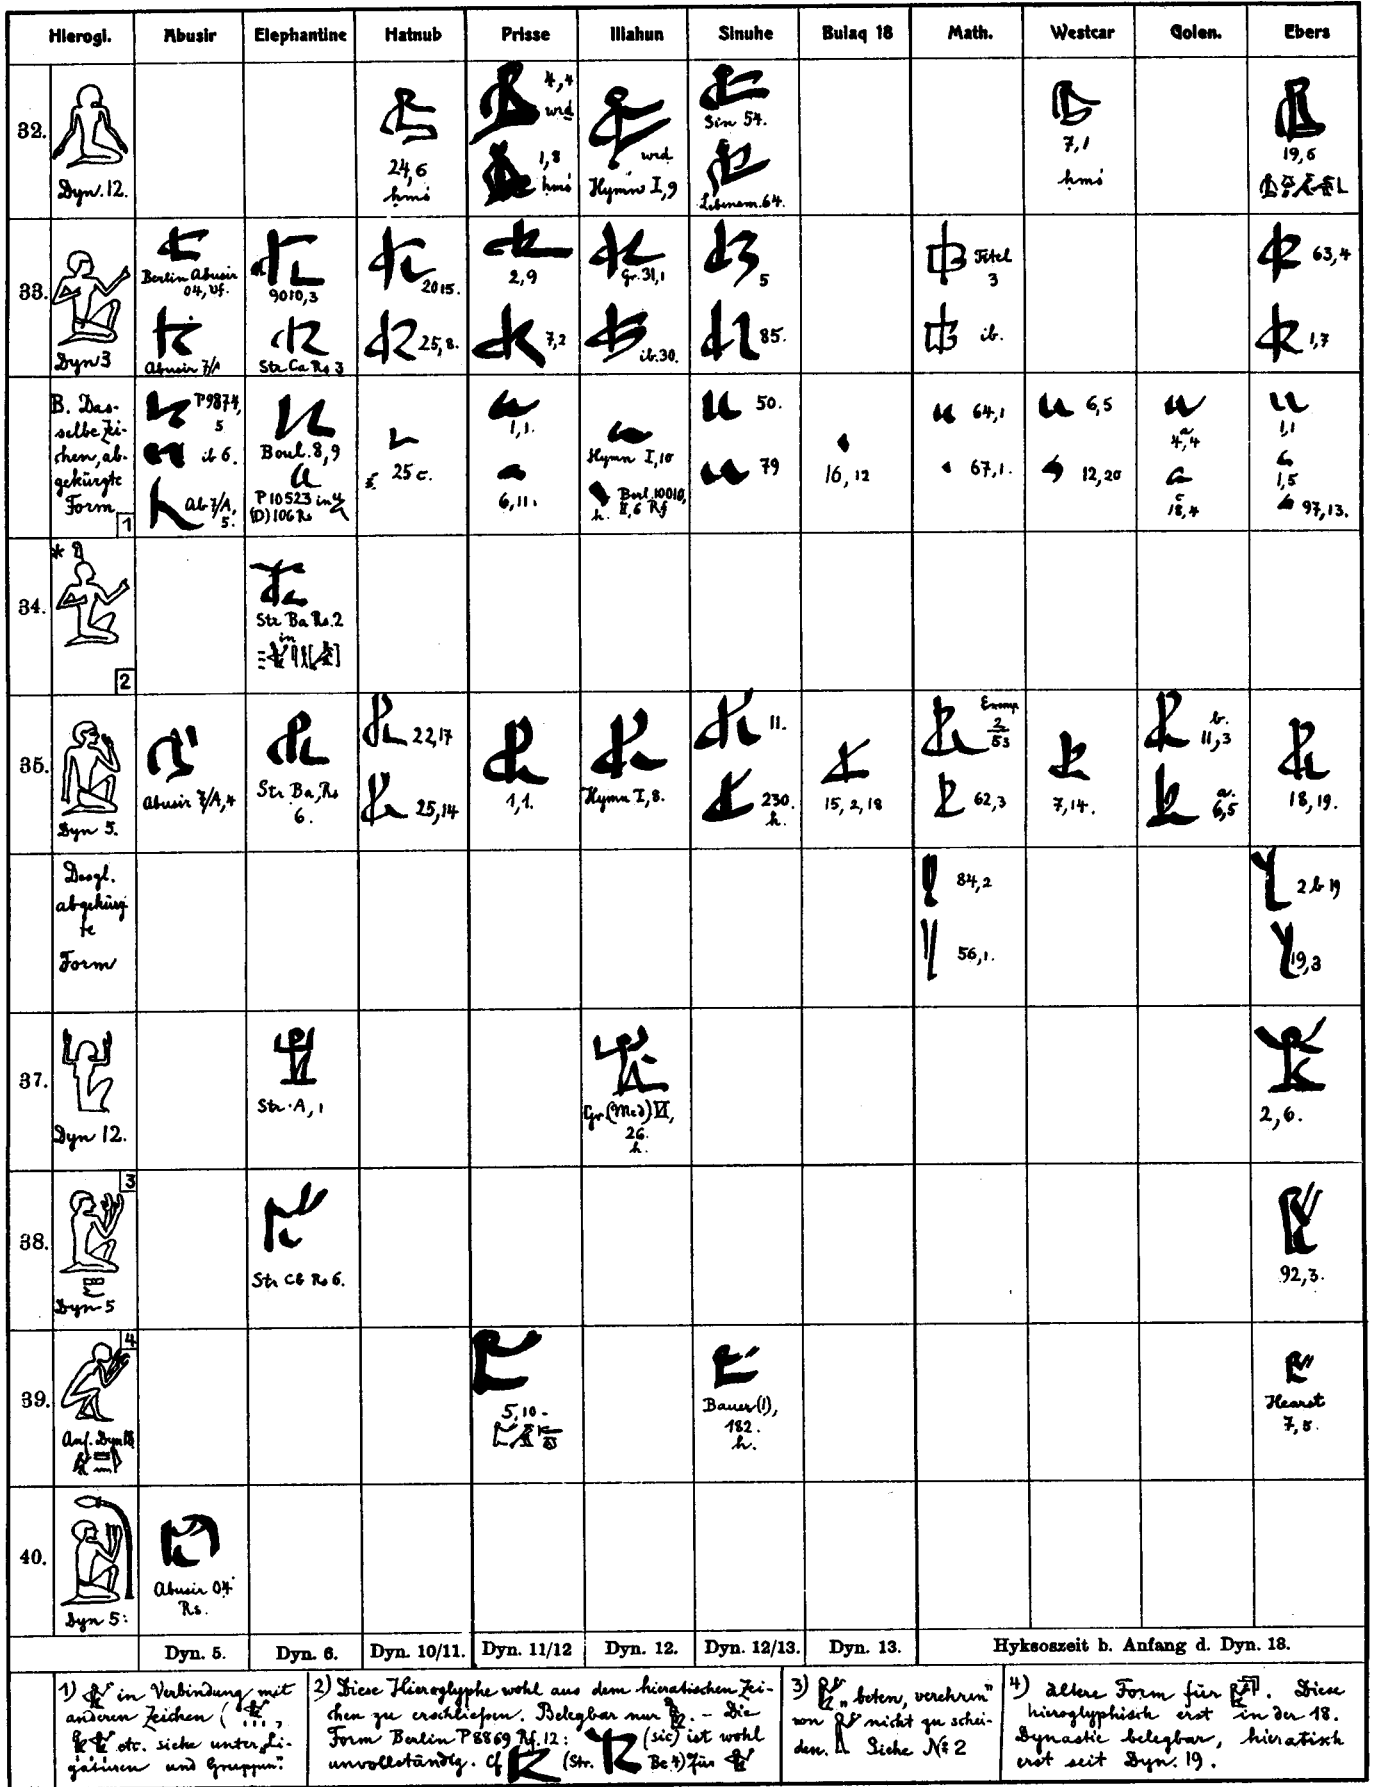 Hierogl. Abusir Elephantine Hatnub Prisse Illahun Sinuhe Bulaq 18 Math. Westcar Golen. Ebers
32.
Dyn. 12.
24,6
ḥmś
4,4
wrd
1,8
ḥmś
wrd
Hymn I,9
Sin 54.
Lebensm. 64.
7,1
ḥmś
19,6
33.
Dyn 3
Berlin Abusir
04, Vf.
Abusir 7/A
9010,3
Str Ca Rs 3
2015.
25,8.
2,9
7,2
Gr. 31,1
ib. 30.
5
85.
Titel
3
ib.
63,4
1,7
B. Das-
selbe Zei-
chen, ab-
gekürzte
Form
1
P 9874,
5
ib 6.
Ab 7/A,
5.
Boul. 8,9
P 10523 in
(D) 106 Rs
25 c.
1,1.
6,11.
Hymn I,10
Berl. 10010,
II,6 Rf
h.
50.
79
16,12
64,1
67,1.
6,5
12,20
a
4,4
c
18,4
1,1
1,5
97,13.
*
34.
2
Str Ba Rs. 2
in
35.
Dyn 5.
Abusir 7/A,4
Str Ba, Rs
6.
22,17
25,14
1,1.
Hymn I,8.
11.
230.
h.
15, 2, 18
Exemp
2
53
62,3
7,14.
b.
11,3
a.
6,5
18,19.
Desgl.
abgekürz
te
Form
84,2
56,1.
2 b 19
19,3
37.
Dyn 12.
Str. A, 1
Gr. (Med) VI,
26.
h.
2,6.
38.
3
Dyn 5
Str Cb Rs 6.
92,3.
39.
4
Anf. Dyn 18
5,10-
Bauer (1),
182.
h.
Hearst
7,5.
40.
Dyn 5:
Abusir 04
Rs.
Dyn. 5. Dyn. 6. Dyn. 10/11. Dyn. 11/12 Dyn. 12. Dyn. 12/13. Dyn. 13. Hyksoszeit b. Anfang d. Dyn. 18.
1) in Verbindung mit
anderen Zeichen (
etc. siehe unter „Li-
gaturen und Gruppen“.
2) Diese Hieroglyphe wohl aus dem hieratischen Zei-
chen zu erschließen. Belegbar nur . – Die
Form Berlin P 8869 Rf. 12: (sic) ist wohl
unvollständig. Cf (Str. Be 4) für
3) „beten, verehren“
von nicht zu schei-
den. Siehe № 2
4) ältere Form für . Diese
hieroglyphisch erst in der 18.
Dynastie belegbar, hieratisch
erst seit Dyn. 19.